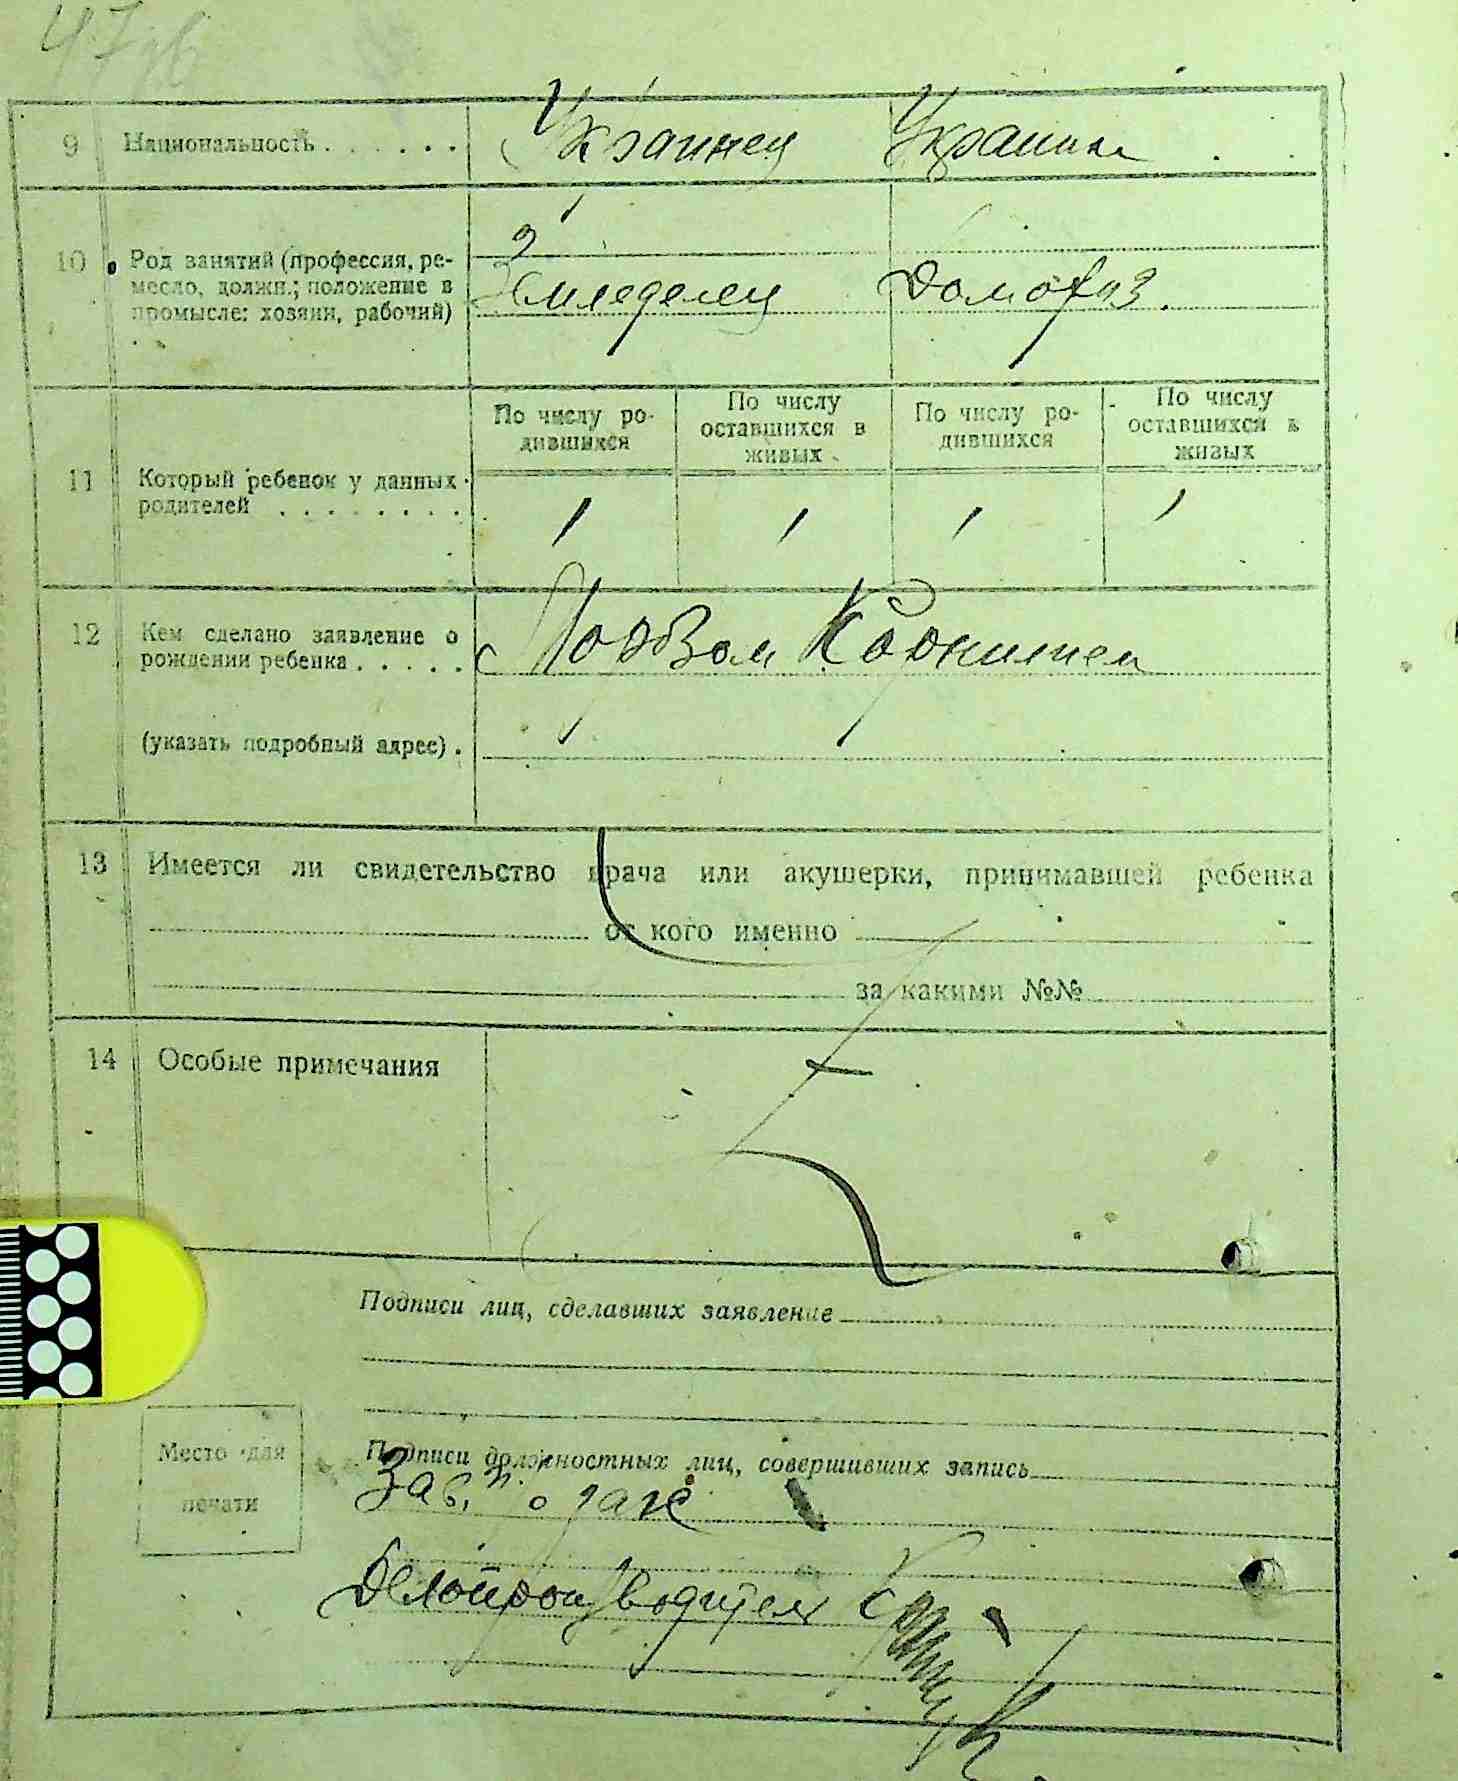 47
9 Национальность . . . . . . Украинец Украинк
10 Род занятий (профессия, ре-
месло, должн.; положение в
промысле: хозяин, рабочий)
Земледелец Домохоз.
По числу ро-
дившихся
По числу
оставшихся в
живых
По числу ро-
дившихся
По числу
оставшихся в
живых
11 Который ребенок у данных
родителей . . . . . . . .
1 1 1 1
12 Кем сделано заявление о
рождении ребенка . . . . .
(указать подробный адрес) .
13 Имеется ли свидетельство врача или акушерки, принимавшей ребенка
от кого именно
за какими №№
14 Особые примечания
Подписи лиц, сделавших заявление
Место для
печати
Подписи должностных лиц, совершивших запись
Зав.
Делопроизводитель